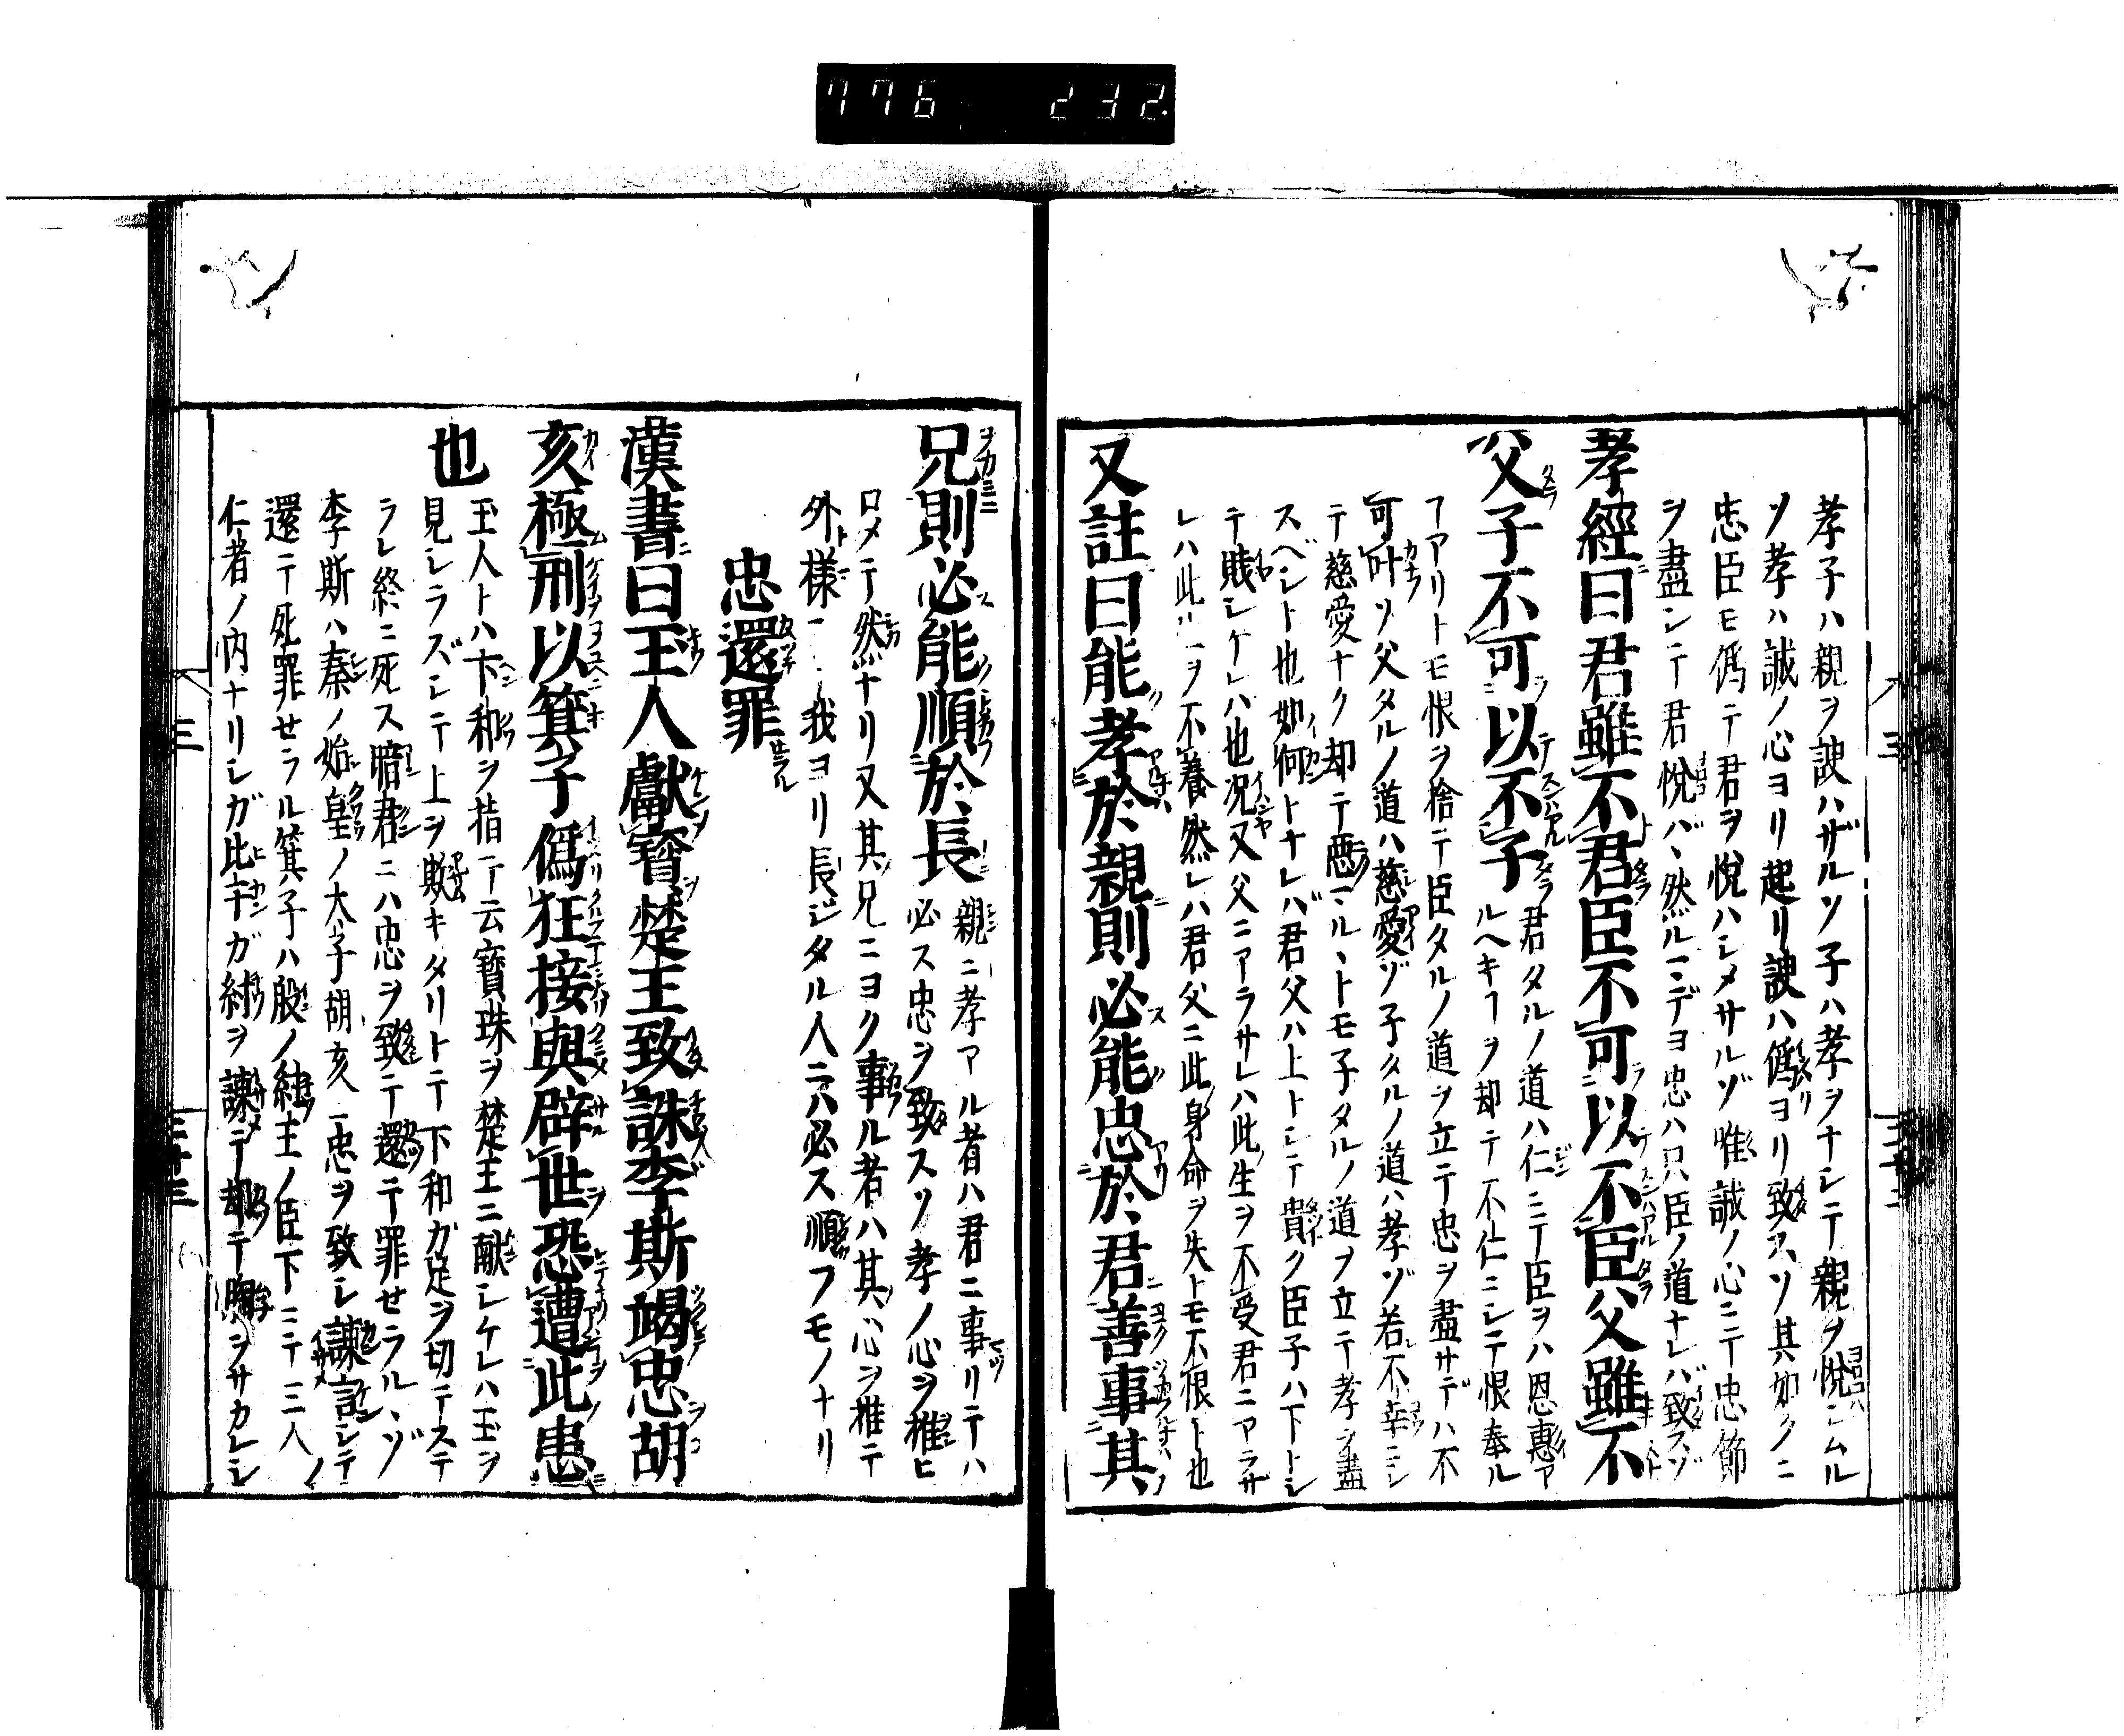 776 232
孝子ハ親ヲ諛ハザルソ子ハ孝ヲナシニテ親ヲ悦シムル
ソ孝ハ誠ノ心ヨリ起リ諛ハ偽ヨリ致スソ其如クニ
忠臣モ偽テ君ヲ悦ハシメサルゾ唯誠ノ心ニテ忠節
ヲ盡シテ君悦バ然ルヿデヨ忠ハ只臣ノ道ナレバ致スゾ
孝經曰君雖不君臣不可以不臣父雖不
父子不可以不子 君タルノ道ハ仁ニテ臣ヲハ恩惠ア
ルヘキヿヲ却テ不仁ニシテ恨奉ル
ヿアリトモ恨ヲ捨テ臣タルノ道ヲ立テ忠ヲ盡サデハ不
可叶ソ父タルノ道ハ慈愛ゾ子タルノ道ハ孝ゾ若不幸ニシ
テ慈愛ナク却テ悪マルヽトモ子タルノ道ヲ立テ孝ヲ盡
スベシト也如何トナレバ君父ハ上トシテ貴ク臣子ハ下トシ
テ賤シケレハ也况又父ニアラサレハ此生ヲ不受君ニアラサ
レハ此ヲ不養然レハ君父ニ此身命ヲ失トモ不恨ト也
又註曰能孝於親則必能忠於君善事其
兄則必能順於長 親ニ孝アル者ハ君ニ事リテハ
必ス忠ヲ致スソ孝ノ心ヲ推ヒ
ロメテ然ナリ又其兄ニヨク事ル者ハ其心ヲ推テ
外様ニ我ヨリ長ジタル人ニハ必ス順フモノナリ
忠還罪
漢書曰玉人獻寶楚王致誅李斯竭忠胡
亥極刑以箕子偽狂接輿辟世恐遭此患
也 玉人トハ卞和ヲ指テ云寳珠ヲ楚王ニ献シケレハ玉ヲ
見シラズシテ上ヲ欺キタリトテ下和ガ足ヲ切テステ
ラレ終ニ死ス暗君ニハ忠ヲ致テ還テ罪せラルヽゾ
李斯ハ秦ノ始皇ノ太子胡亥ニ忠ヲ致シ諫言シテ
還テ死罪せラル箕子ハ殷ノ紂王ノ臣下ニテ三人ノ
仁者ノ内ナリシガ比干ガ紂ヲ諫テ却テ胸ヲサカレシ